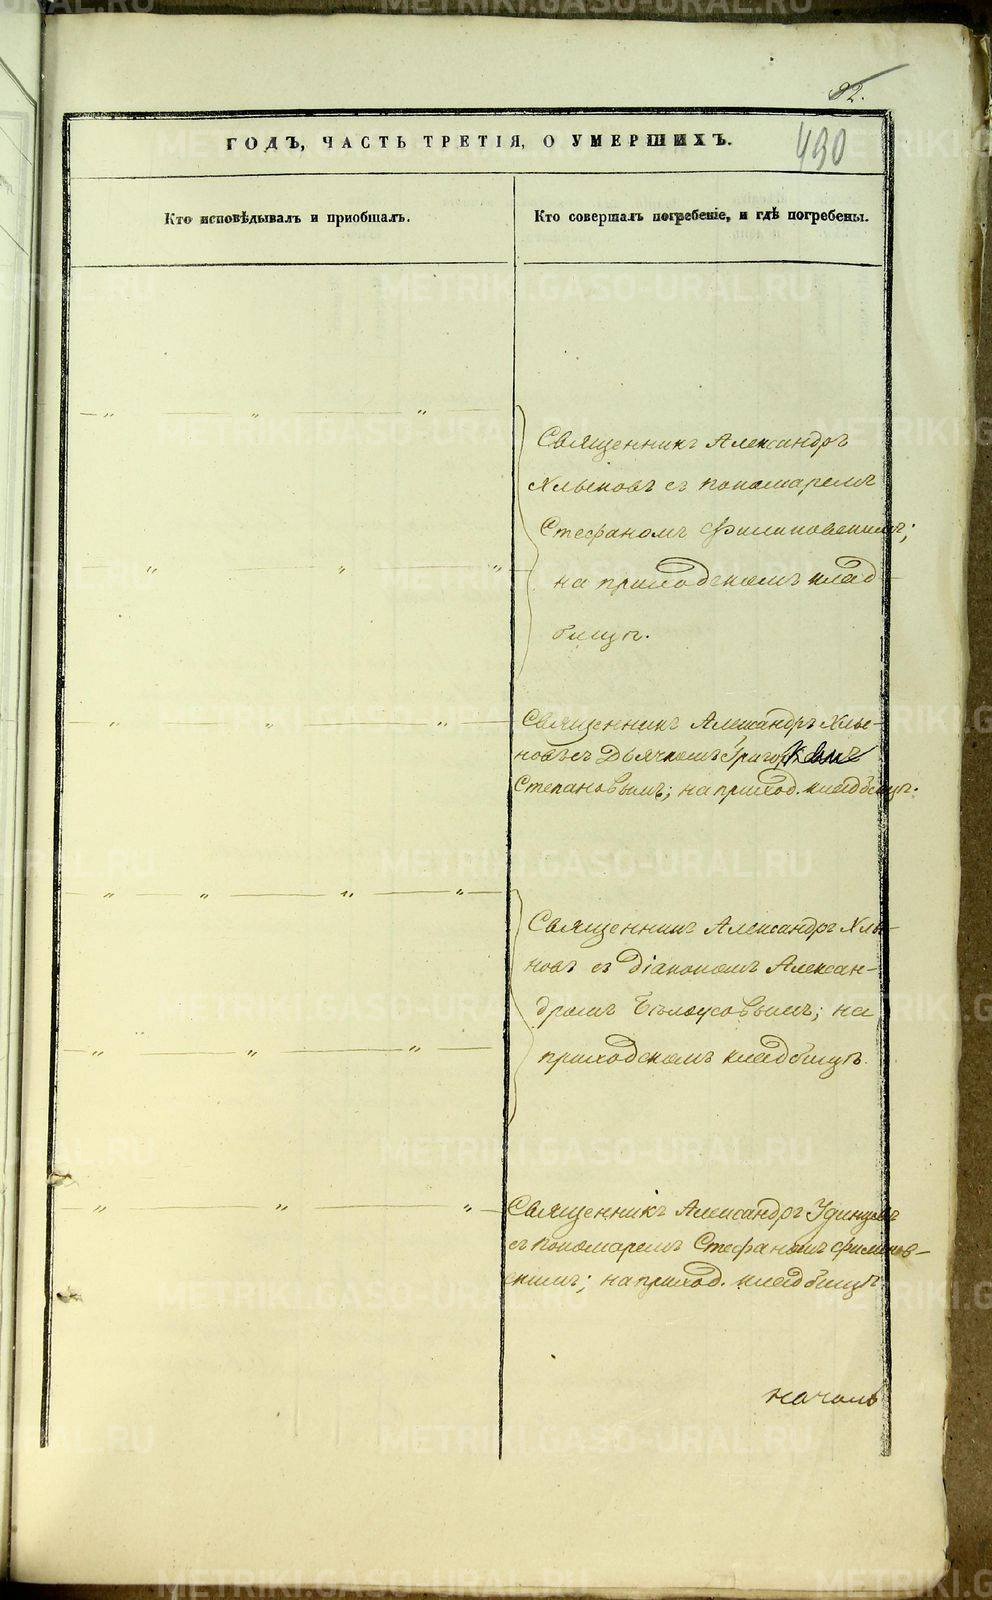 82.
490
ГОДЪ, ЧАСТЬ ТРЕТІЯ, О УМЕРШИХЪ.
Кто исповѣдывалъ и пріобщалъ.
Кто совершалъ погребеніе, и гдѣ погребены.
Священникъ Александръ
Хлыновъ съ пономаремъ
Стефаномъ Филиповскимъ;
на приходскомъ клад-
бищѣ.
Священникъ Александръ Хлы-
новъ съ Дьячкомъ
Степановымъ; на приход. кладбищѣ.
Священникъ Александръ Хлы-
новъ съ Діакономъ Алексан-
дромъ Бѣлоусовымъ; на
приходскомъ кладбищѣ.
Священникъ Александръ Удинцевъ
съ пономаремъ Стефаномъ Филипов-
скимъ; на приход. кладбищѣ
METRIKI.GASO-URAL.RU